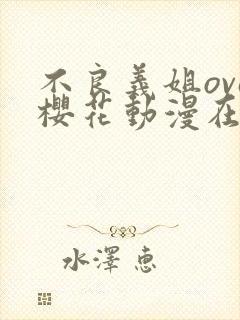 不良義姐ova
櫻花動漫在
水澤惠